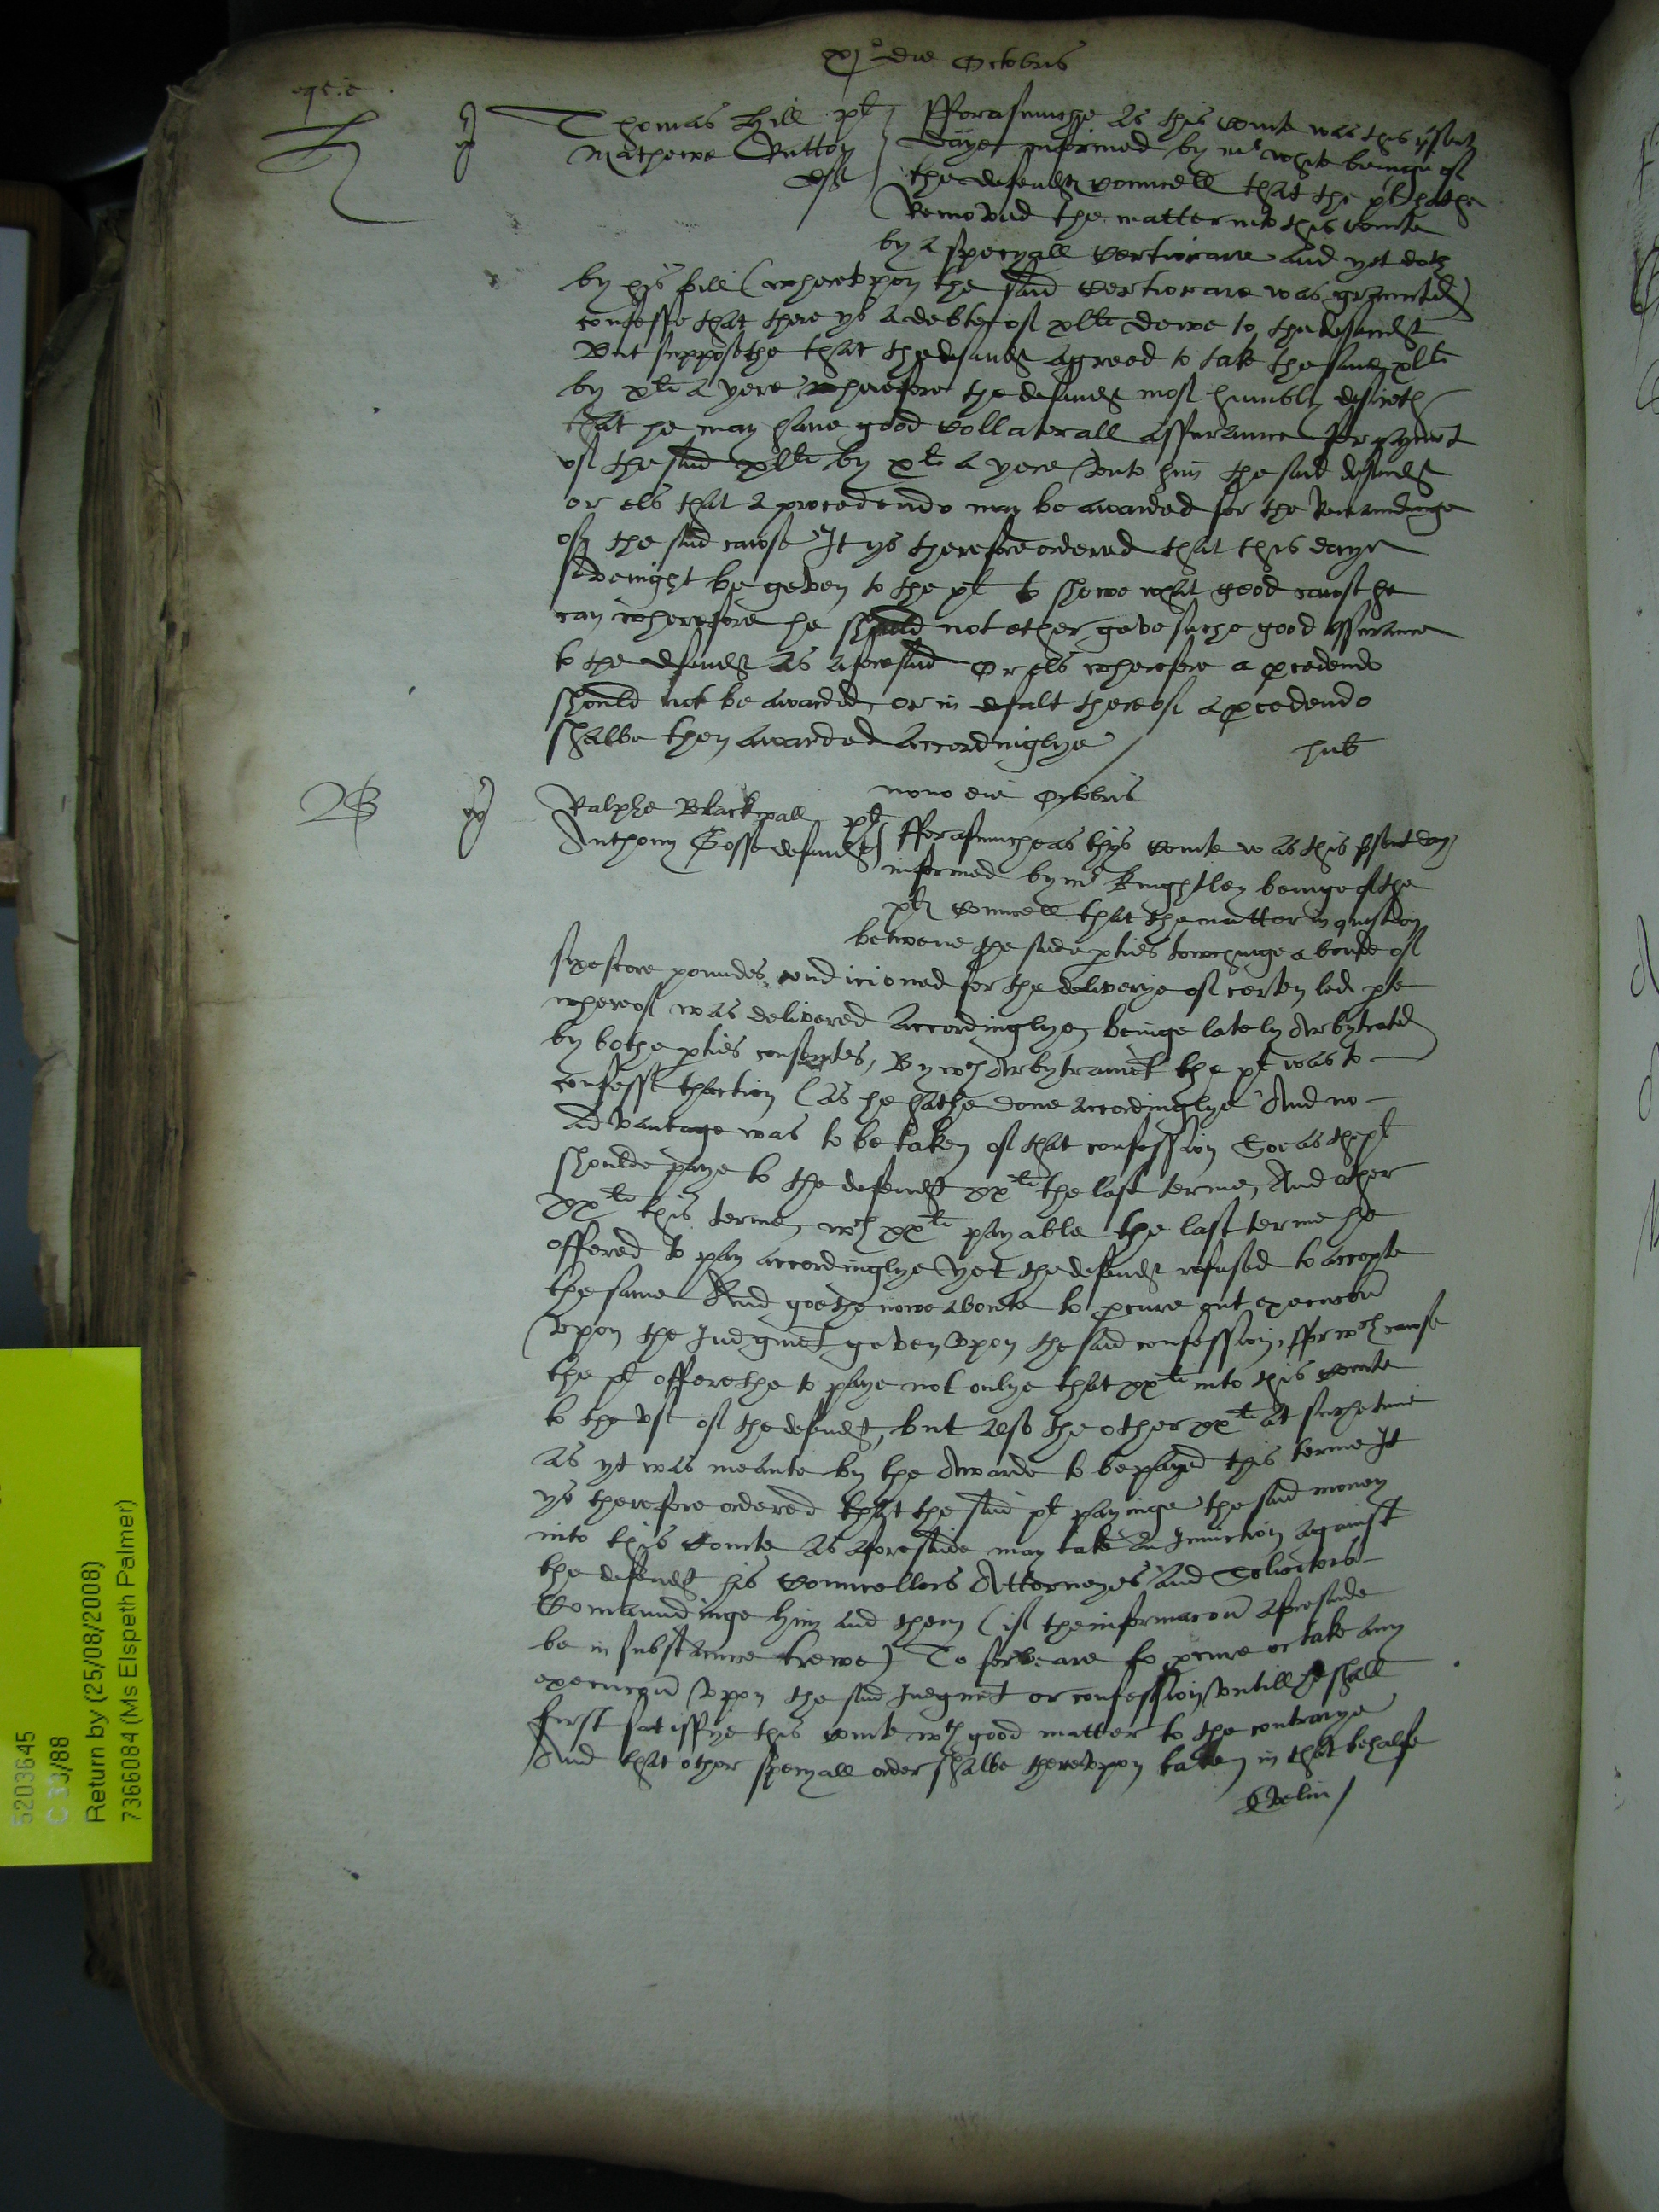 xj die Octobris
H
Thomas Hill plt
Mathewe Rutton
deft
Fforasmuche as this Courte was this pсent
daye informed by mr white beinge of
the defendtes Councell that the plt hathe
Removed the matter into this Courte
by a specyall Certiorare and yet doth
by his bill (whereupon the said Certiorare was graunted)
confesse that there ys a debte of xlli dewe to the defendt
But supposethe that the defendt agreed to take the same xlli
by xli a yere wherefore the defendt most humbly desireth
that he may have good Collaterall assurance for payment
of the said xlli by xli a yere unto him the said defendt
or els that a procedendo may be awarded for the Remaundinge
of the said cawse It ys therefore ordered that this daye
sevenight be geven to the plt to shewe what good cawse he
can wherefore he should not ether geve suche good assurance
to the defendt as aforesaid Or els wherefore a pcedendo
should not be awarded, or in defalt thereof a pcedendo
shalbe then awarded accordinglye
hub
nono die Octobris
B
Ralphe Blackwall plt
Anthony Gosse defendt
Fforasmucheas this Courte was this psent day
informed by mr Knightley beinge of the
plts Councell that the matter in question
betwene the saide pties towchinge a bonde of
sixe score poundes condicioned for the deliverye of certen led pte
whereof was delivered accordinglye, beinge lately Arbytrated
by bothe pties consentes, By wch Arbytrament the plt was to
confesse thaction (as he hathe done accordinglye And no
advantage was to be taken of that confession Soe as the plt
shoulde paye to the defendt xxli the last terme, And other
xxli this terme, wch xxli payable the last terme he
offered to pay accordinglye yet the defendt refused to accepte
the same And goethe nowe aboute to pcure out execucon
upon the Judgment geven upon the said confession, ffor wch cawse
the plt offerethe to paye not onlye that xxli into this Courte
to the use of the defendt, but also the other xxli at suche time
as yt was meante by the Awarde to be payed this terme It
ys therefore ordered that the said plt payinge the said money
into this Courte as aforesaide may take an Iniunction against
the defendt his Councellors Attorneyes and Solicitors
Comaundinge him and them (if the informacon aforesaide
be in substaunce trewe) To forbeare to pcure or take any
execucon uppon the said Judgment or confession, untill he shall
first satisffye this Courte wth good matter to the contrarye
And that other specyall order shalbe thereupon taken in that behalfe
Evelin
5203645
C 33/88
Return by (25/08/2008)
7366084 (Ms Elspeth Palmer)